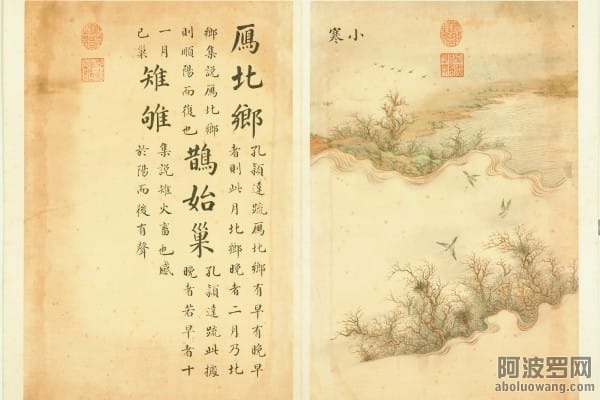 小寒
鴈北鄉
孔穎達疏鴈北鄉有早有晚早
者則此月北鄉晚者二月乃北
鄉集説鴈北鄉
則順陽而復也
鵲始巢
孔穎達疏此據
晚者若早者十
一月
已巢
雉雊
集説雉火畜也感
於陽而後有聲
阿波罗网
aboluowang.com